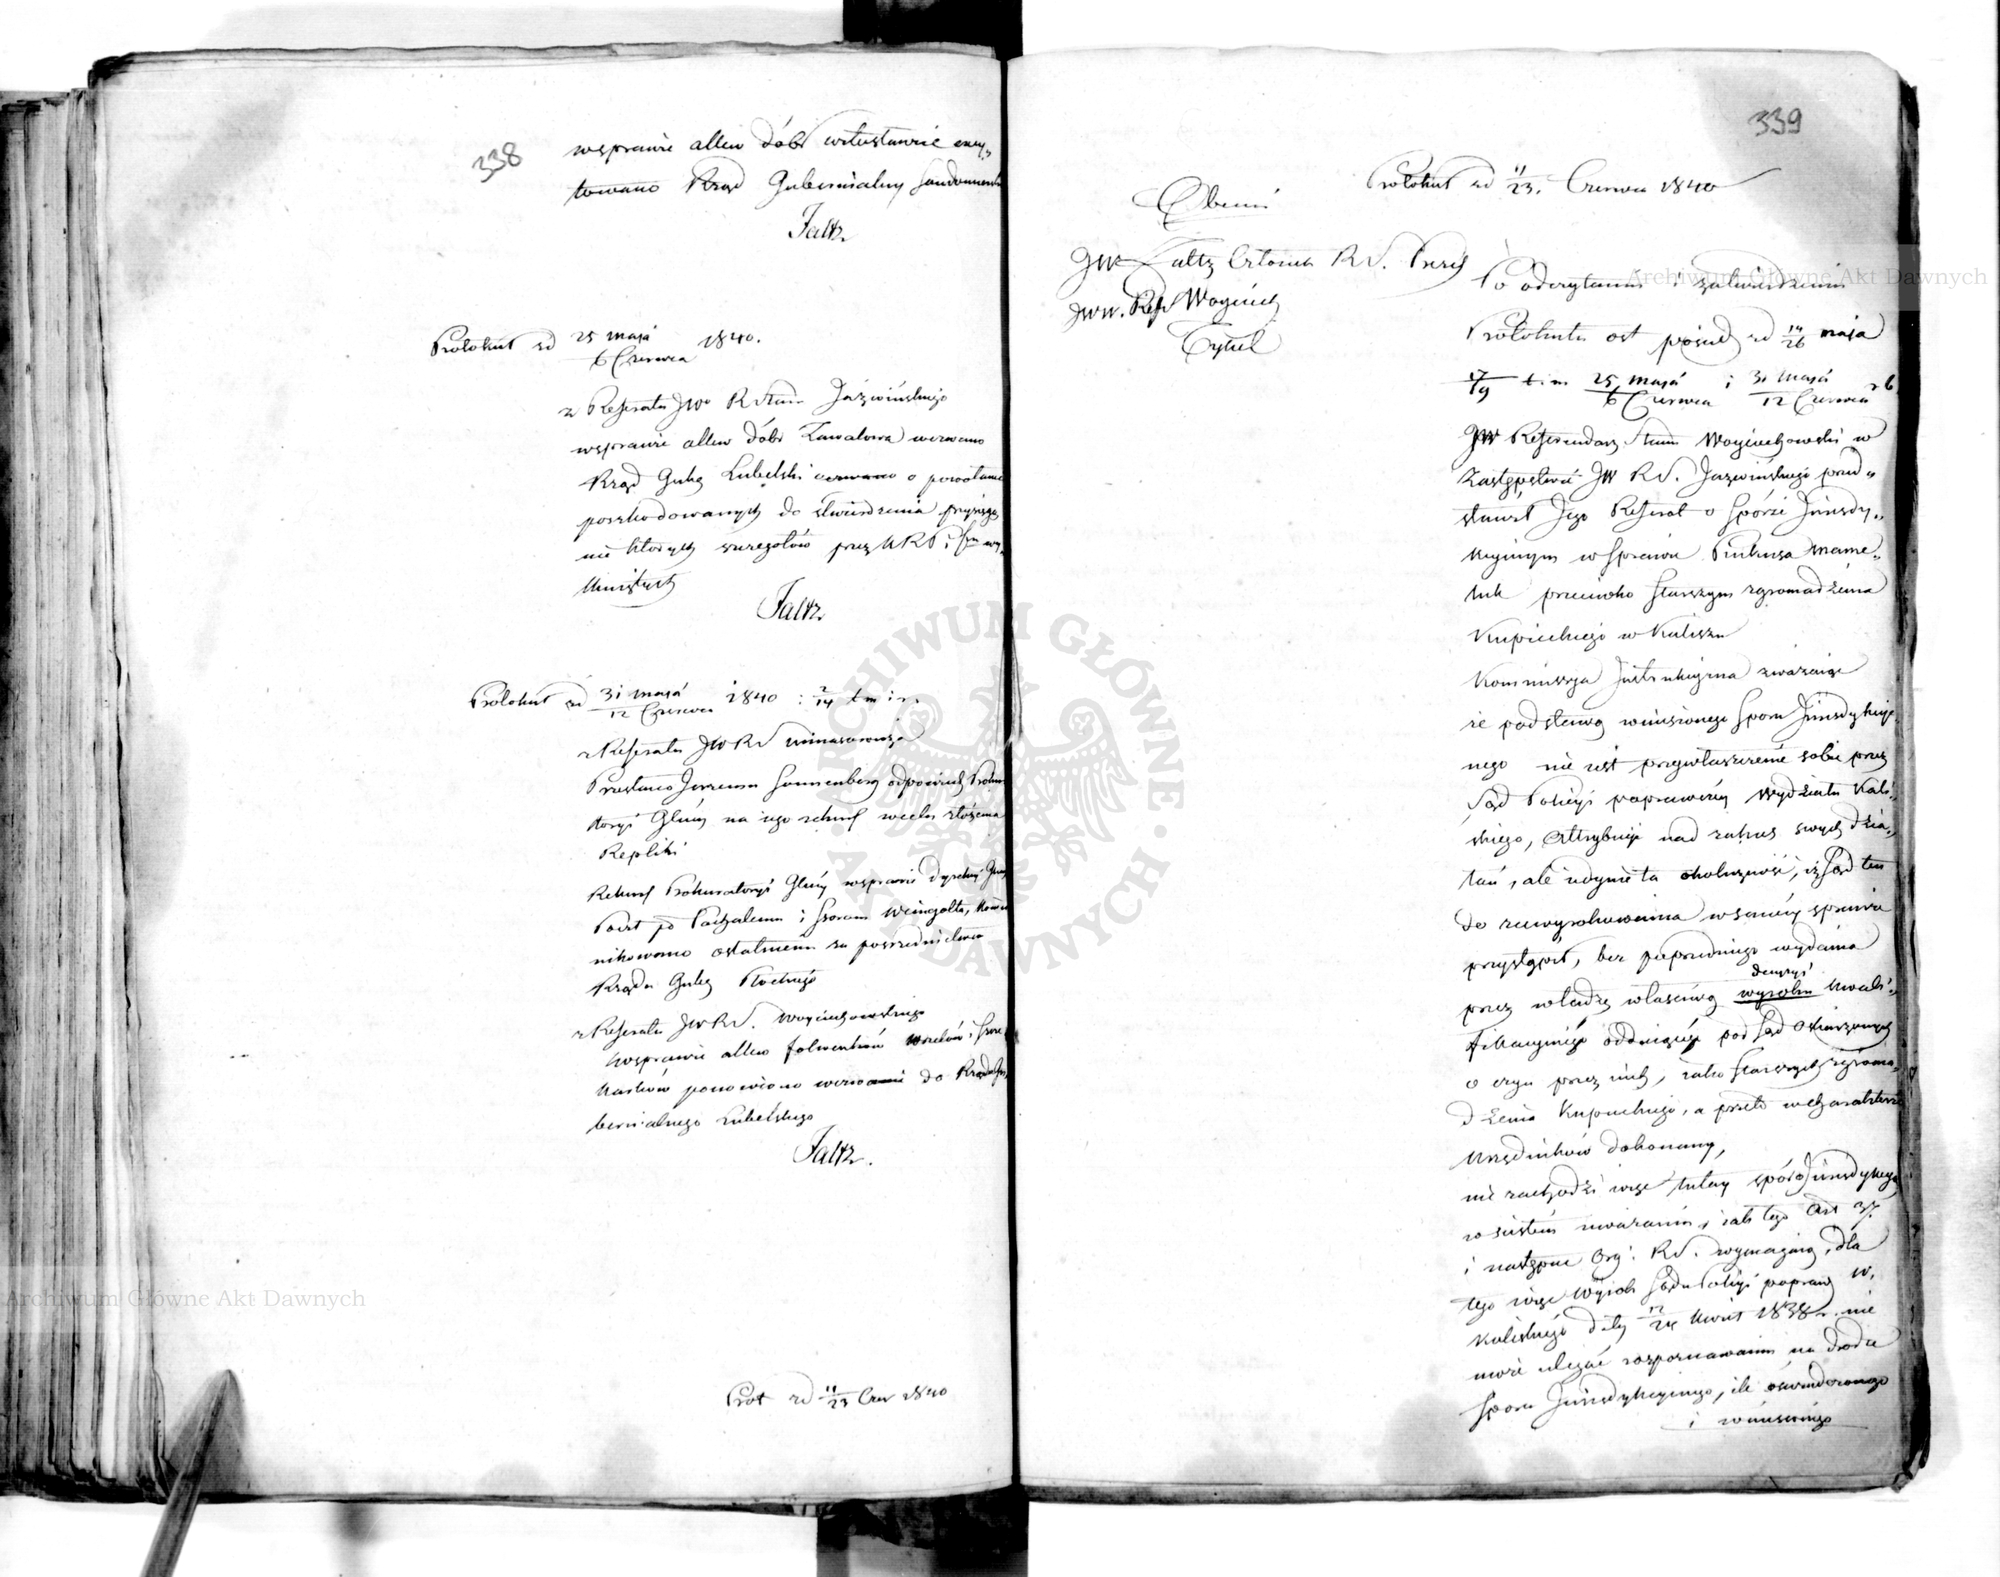 338
w sprawie allew dóbr exey„
towano Rząd Gubernialny Sandomierski
Faltz
Protokuł zd 25 Maja / 6 Czerwca 1840.
z Referatu JWo R Stanu Jaźwińskiego
w sprawie allew dóbr Zawalowa wezwano
Rząd Gubg Lubelski o powołanie
poszkodowanych do stwierdzenia przysięgą
nie których szczegółów przez KRP i
Faltz
Protokuł zd 31 Maja / 12 Czerwca 1840 i 2/14 t m i r.
z Referatu JWRS Minasowicza
Przesłano Sonnenberg odpowiedź Proku
toryi Głney na jego rekurs w celu złożenia
Repliki
Rekurs Prokuratoryi Głney w sprawie
Poczt po i Weingolta, komu
nikowano ostatniemu za posrednictwem
Rządu Gubg Płockiego
z Referatu JWRS. Woyciechowskiego
W sprawie allew folwarków
ponowiono wezwanie do Rządu Gu
bernialnego Lubelskiego
Faltz.
Prot zd 11/23 Czer 1840
339
Protokuł zd 11/23. Czerwca 1840
Obecni
JW Faltz Członek RS. Prezy
JWW. Refr Woyciech
Tykel
Po odczytaniu i zatwierdzeniu
Protokułu ost posied zd 14/26 maja
t. i m. 25 Maja / 6 Czerwca i 31 Maja / 12 Czerwca r b
JW Referendarz Stanu Woyciechowski w
Zastępstwie JW RS. Jaźwińskiego przed„
stawił Jego Referat o Sporze Jurisdy„
kcyjnym w Sprawie Pinkusa Mame„
luk przeciwko Starszym zgromadzenia
Kupieckiego w Kaliszu
Kommissya Instrukcyjna zważając
że podstawą wniesionego Sporu Jurisdykcyj„
nego nie jest przywłaszczenie sobie przez
Sąd Policyi poprawczey Wydziału Kali„
skiego, Attrybucyi nad zakres swych dzia„
łań, ale jedynie ta okoliczność, iż Sąd ten
do zawyrokowania w samey sprawie
przystąpił, bez poprzedniego wydania
przez władzę właściwą wyroku decyzyi kwali„
fikacyinéj oddającéj pod Sąd Oskarzonych
o czyn przez nich, jako Starszych zgroma„
dzenia Kupieckiego, a przeto w charakterze
Urzędników dokonany,
nie zachodzi więc tutay spór Jurisdykcyjny
w scisłem uważaniu, jak tego Art 37.
i następne Org: RS. wymagają, dla
tego więc Wyrok Sądu Policyi popraw W.
Kaliskiego daty 12/24 Kwiet 1838 r. nie
może ulegać rozpoznawaniu na drodze
Sporu Jurisdykcyjnego, ile oświadczonego
i wniesionego
Archiwum Główne Akt Dawnych
Archiwum Główne Akt Dawnych
ARCHIWUM GŁÓWNE · AKT DAWNYCH ·